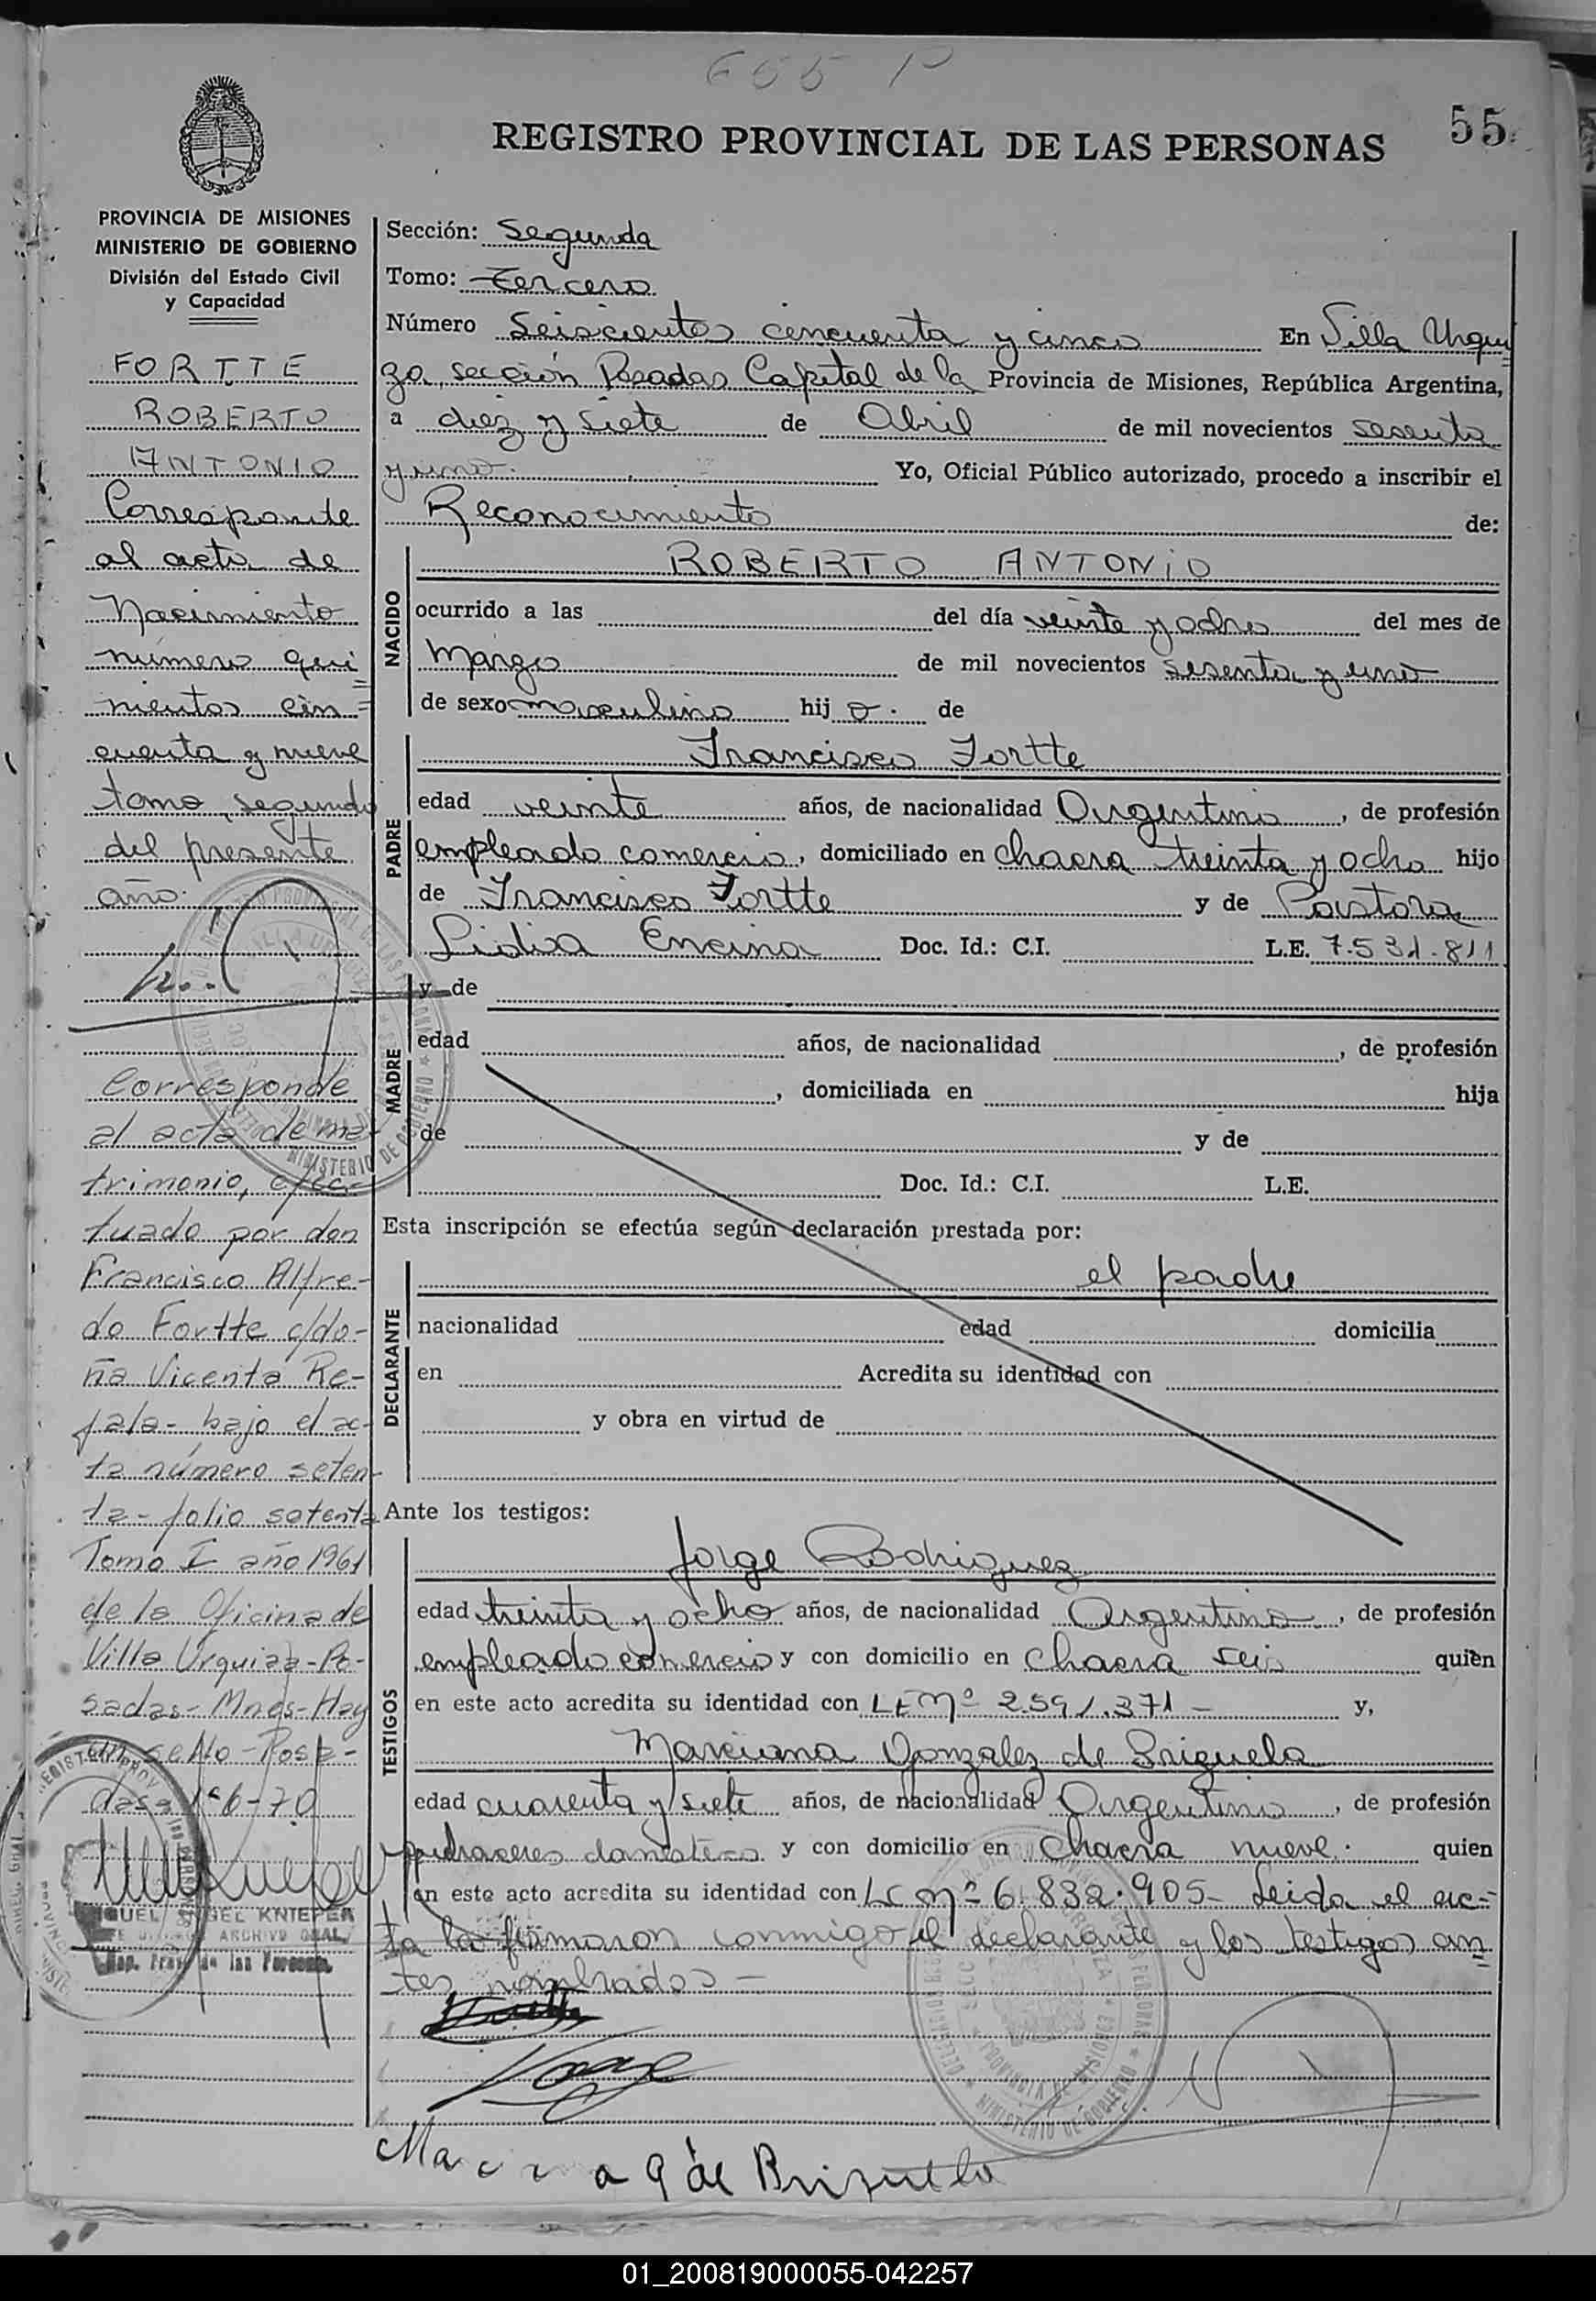 655 P
55
REGISTRO PROVINCIAL DE LAS PERSONAS
PROVINCIA DE MISIONES
MINISTERIO DE GOBIERNO
División del Estado Civil
y Capacidad
FORTTE
ROBERTO
ANTONIO
Corresponde
al acta de
Nacimiento
número qui=
nientos cin=
cuenta y nueve
tomo segundo
del presente
año.
Corresponde
al acta de ma-
trimonio, efec-
tuado por don
Francisco Alfre-
do Fortte c/do-
ña Vicenta Re-
fala- bajo el ac-
ta número seten-
ta- folio setenta
Tomo I año 1961
de la Oficina de
Villa Urquiza-Po-
sadas- Mnes- Hay
un sello- Posa-
das, 1º-6-70
MIGUEL ANGEL KNIEPER
ARCHIVO GRAL.
Rep. Prov. de las Personas
Sección: Segunda
Tomo: Tercero
Número Seiscientos cincuenta y cinco En Villa Urqui
za, sección Posadas Capital de la Provincia de Misiones, República Argentina,
a diez y siete de Abril de mil novecientos sesenta
y uno. Yo, Oficial Público autorizado, procedo a inscribir el
Reconocimiento de:
NACIDO
ROBERTO ANTONIO
ocurrido a las del día veinte y ocho del mes de
Marzo de mil novecientos sesenta y uno
de sexo masculino hijo. de
PADRE
Francisco Fortte
edad veinte años, de nacionalidad Argentino, de profesión
empleado comercio, domiciliado en chacra treinta y ocho hijo
de Francisco Fortte y de Pastora
Lidia Encina Doc. Id.: C.I. L.E. 7.531.811
MADRE
y de
edad años, de nacionalidad , de profesión
, domiciliada en hija
de y de
Doc. Id.: C.I. L.E.
Esta inscripción se efectúa según declaración prestada por:
DECLARANTE
el padre
nacionalidad edad domicilia
en Acredita su identidad con
y obra en virtud de
Ante los testigos:
TESTIGOS
Jorge Rodriguez
edad treinta y ocho años, de nacionalidad Argentino, de profesión
empleado comercio y con domicilio en Chacra seis quien
en este acto acredita su identidad con LE Nº 2.591.371 - y,
Marciana Gonzalez de Briguela
edad cuarenta y siete años, de nacionalidad Argentina, de profesión
quehaceres domésticos y con domicilio en Chacra nueve. quien
en este acto acredita su identidad con LC Nº 6.832.905- Leida el ac=
ta la firmaron conmigo el declarante y los testigos an
tes nombrados -
Jorge
Marciana G de Brizuela
01_200819000055-042257